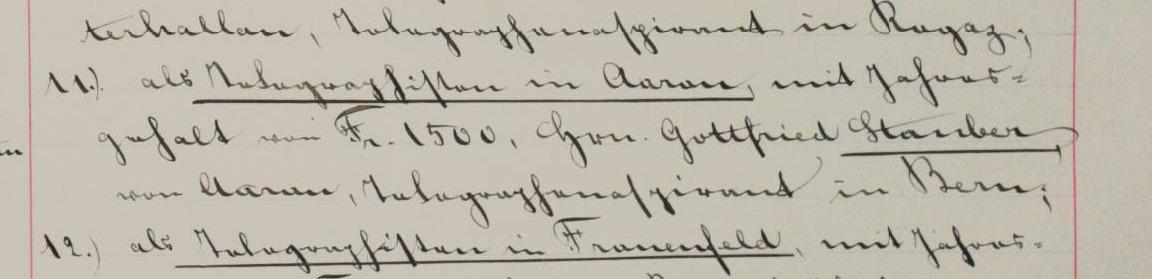 terhallau, Telegraphenaspirant in Ragaz;
11.) als Telegraphisten in Aarau, mit Jahres-
gehalt von Fr. 1500, Hrn. Gottfried Stauber,
von Aarau, Telegraphenaspirant in Bern;
12.) als Telegraphisten in Frauenfeld, mit Jahres-